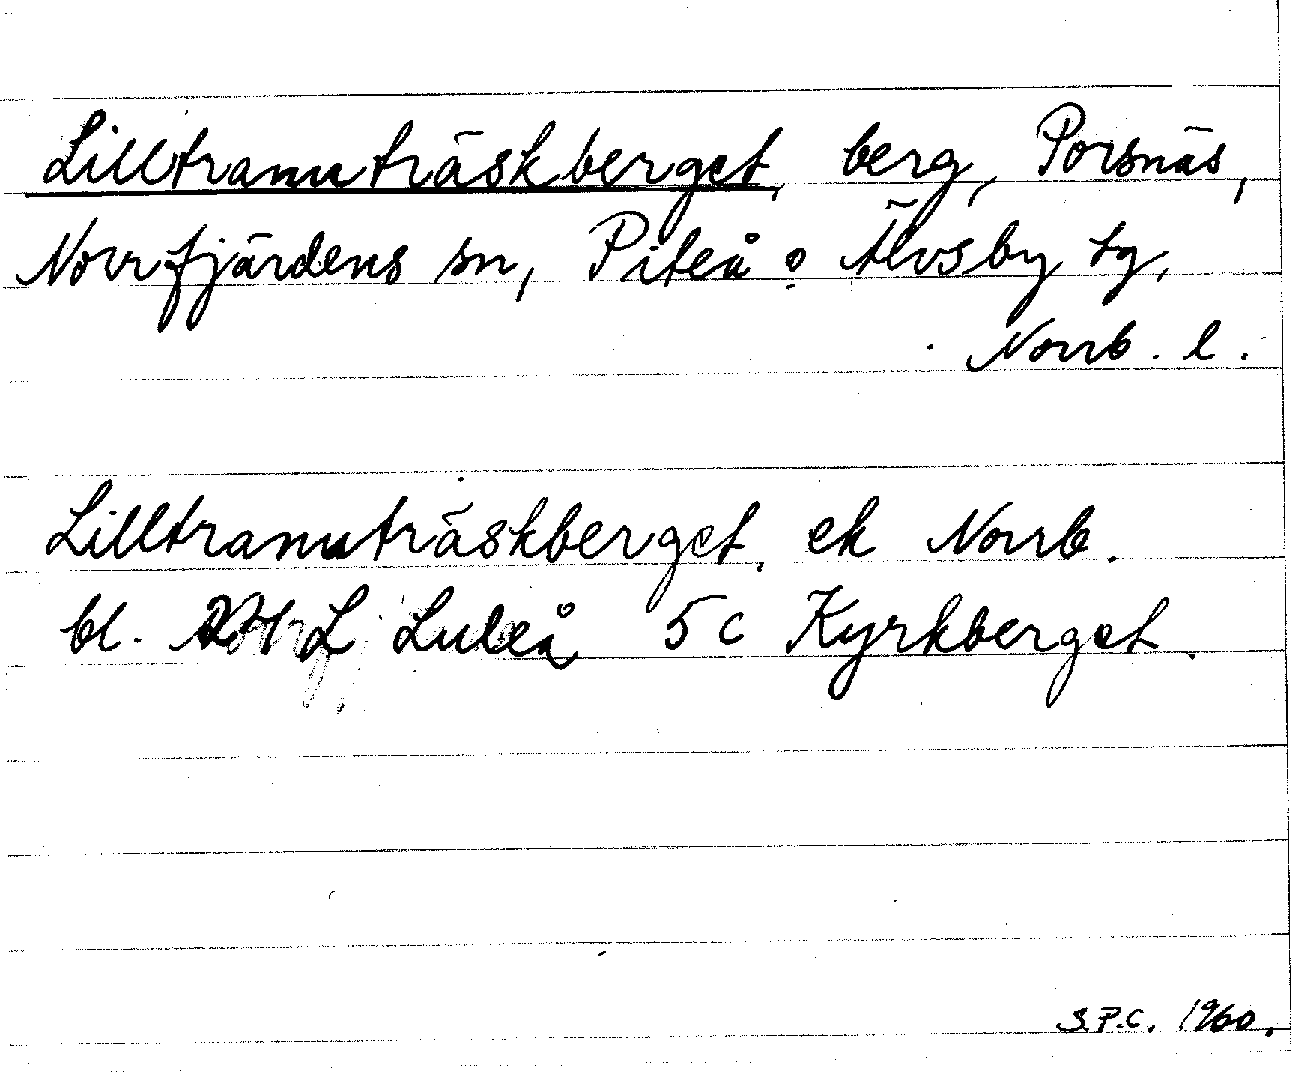 Lilltranuträskberget, berg, Porsnäs,
Norrfjärdens sn, Piteå o Älvsby tg,
Norrb. l.
Lilltranuträskberget, ek Norrb.
bl. L Luleå 5c Kyrkberget.
S.P.C. 1960.